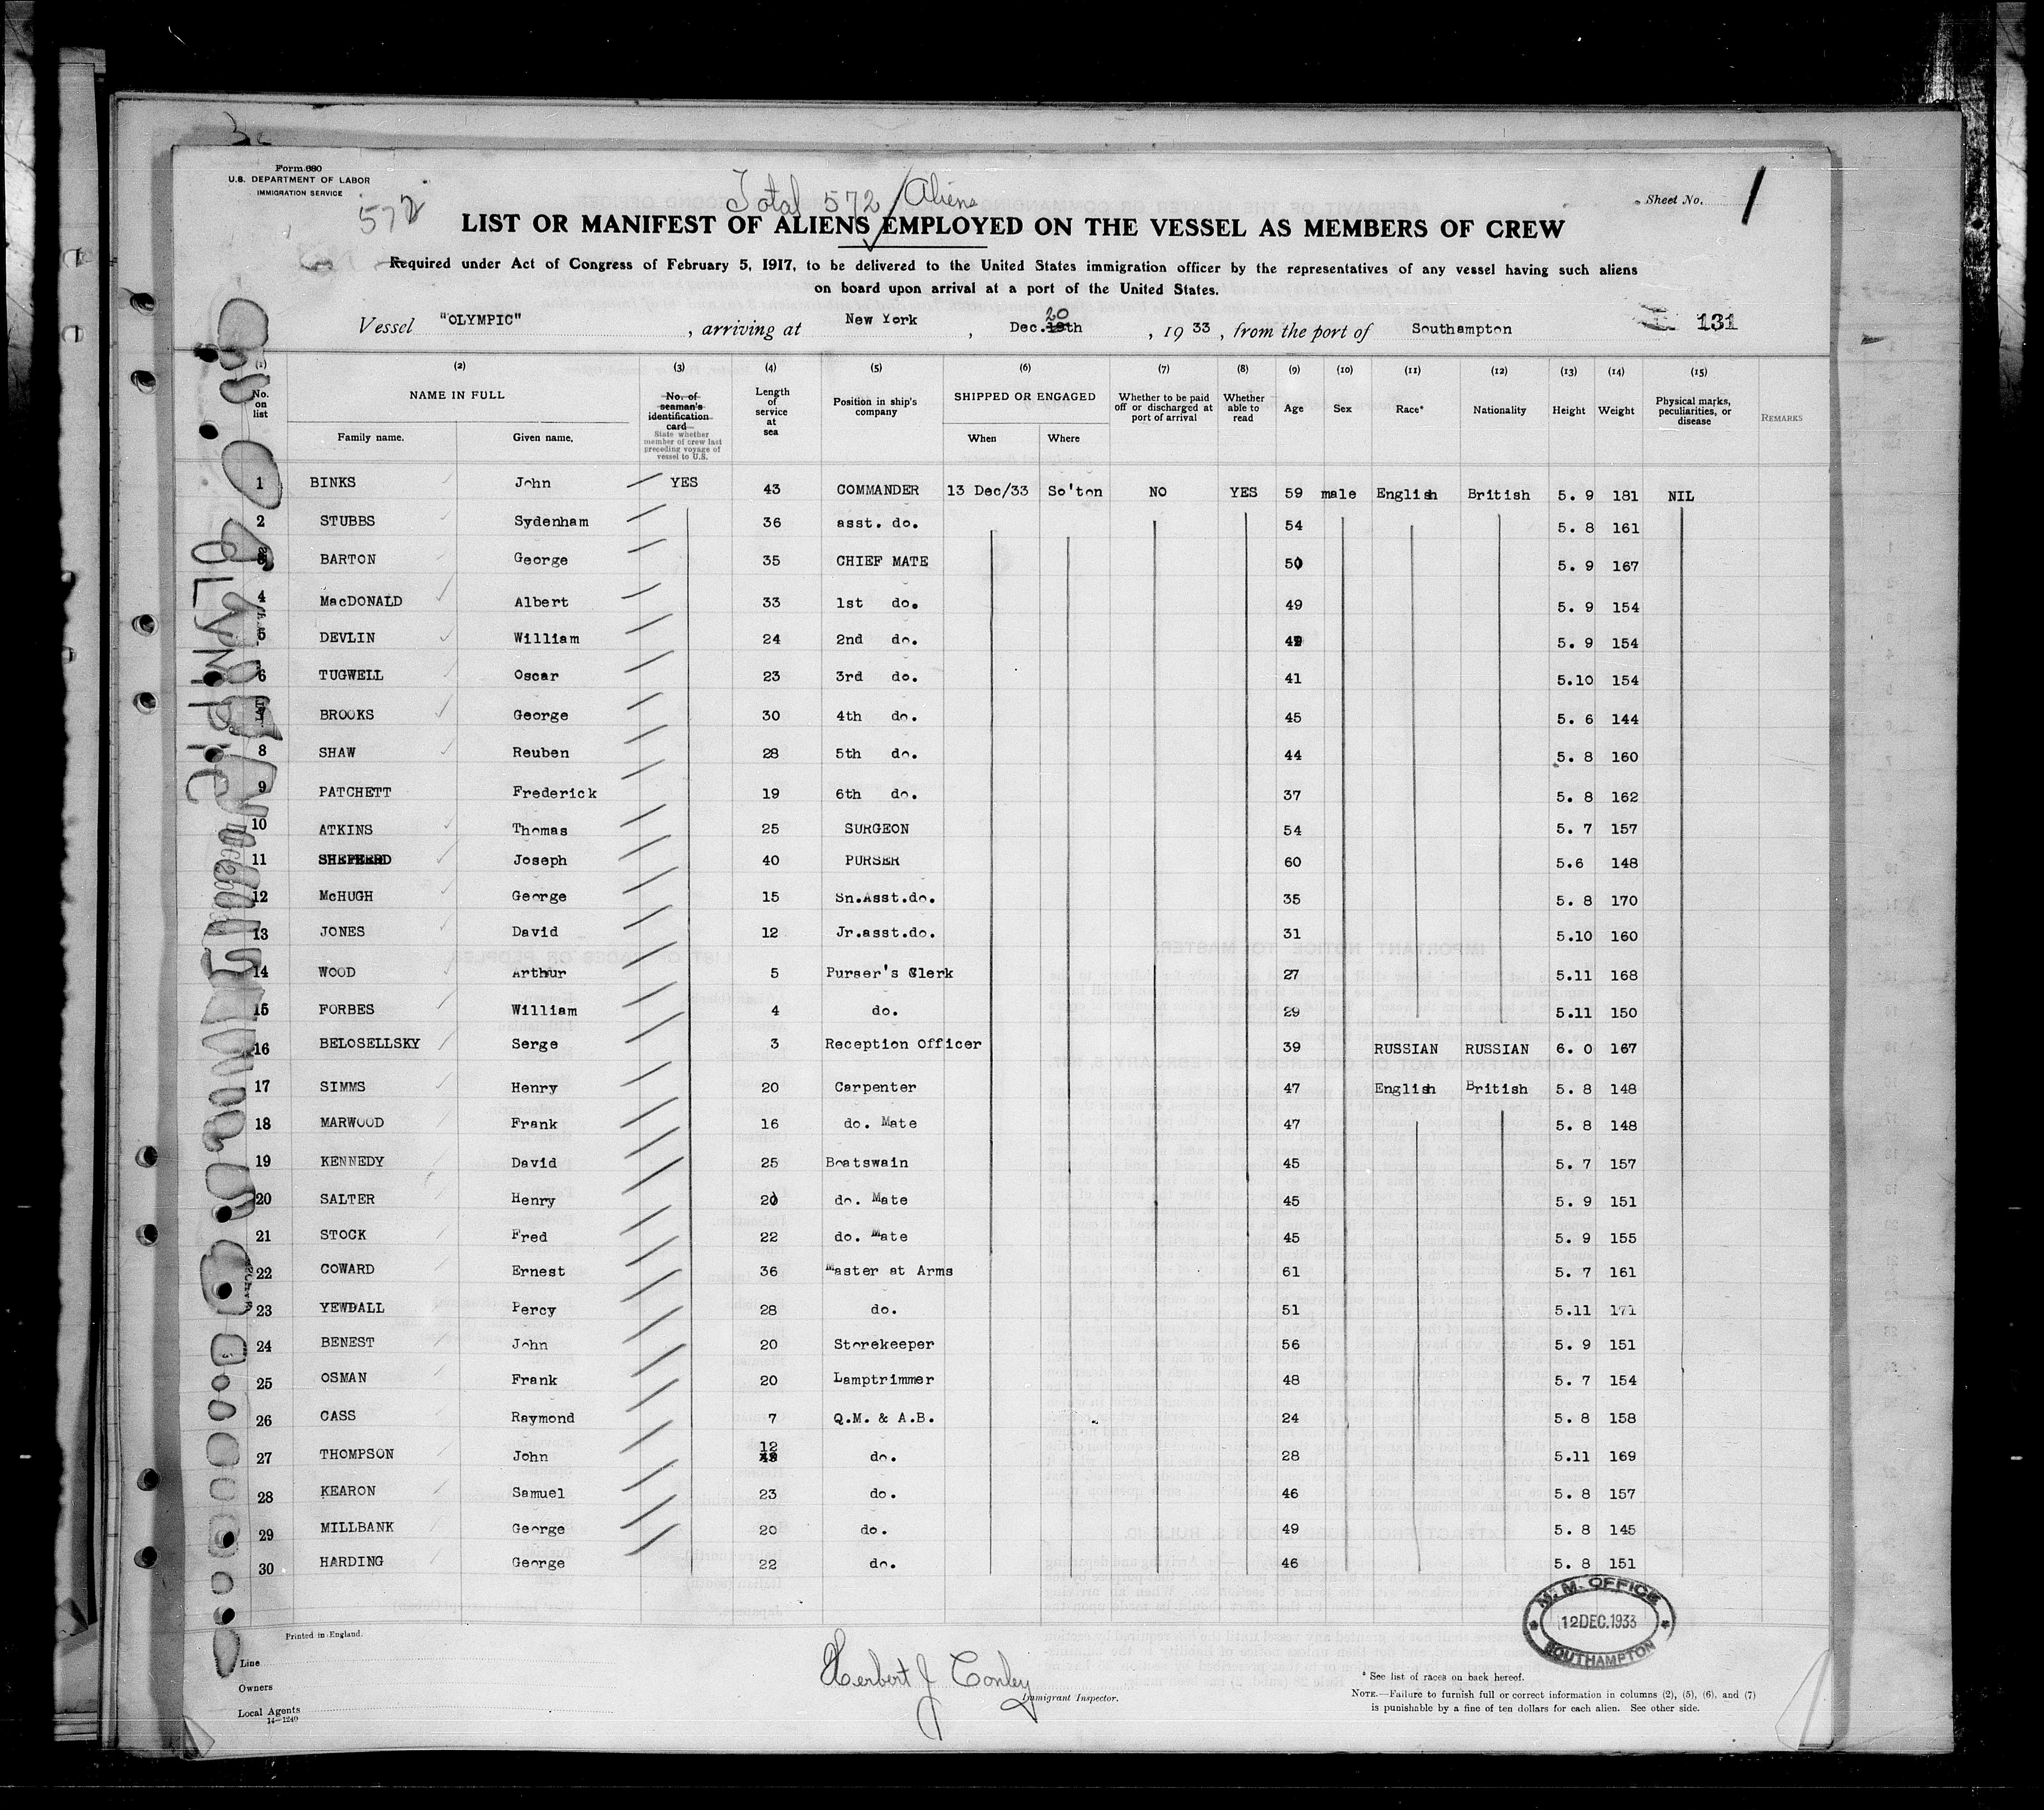 Form 680
U.S. DEPARTMENT OF LABOR
IMMIGRATION SERVICE
572
Total 572 Aliens
Sheet No. 1
LIST OR MANIFEST OF ALIENS EMPLOYED ON THE VESSEL AS MEMBERS OF CREW
Required under Act of Congress of February 5, 1917, to be delivered to the United States immigration officer by the representatives of any vessel having such aliens
on board upon arrival at a port of the United States.
Vessel "OLYMPIC", arriving at New York, Dec. 19th 20, 1933, from the port of Southampton
131
(1) (2) (3) (4) (5) (6) (7) (8) (9) (10) (11) (12) (13) (14) (15)
No. on list NAME IN FULL Family name. Given name. No. of seaman's identification card State whether member of crew last preceding voyage of vessel to U.S. Length of service at sea Position in ship's company SHIPPED OR ENGAGED When Where Whether to be paid off or discharged at port of arrival Whether able to read Age Sex Race* Nationality Height Weight Physical marks, peculiarities, or disease REMARKS
1 BINKS John YES 43 COMMANDER 13 Dec/33 So'ton NO YES 59 male English British 5. 9 181 NIL
2 STUBBS Sydenham 36 asst. do. 54 5. 8 161
3 BARTON George 35 CHIEF MATE 50 5. 9 167
4 MacDONALD Albert 33 1st do. 49 5. 9 154
5 DEVLIN William 24 2nd do. 5. 9 154
6 TUGWELL Oscar 23 3rd do. 41 5.10 154
7 BROOKS George 30 4th do. 45 5. 6 144
8 SHAW Reuben 28 5th do. 44 5. 8 160
9 PATCHETT Frederick 19 6th do. 37 5. 8 162
10 ATKINS Thomas 25 SURGEON 54 5. 7 157
11 Joseph 40 PURSER 60 5.6 148
12 McHUGH George 15 Sn.Asst.do. 35 5. 8 170
13 JONES David 12 Jr.asst.do. 31 5.10 160
14 WOOD Arthur 5 Purser's Clerk 27 5.11 168
15 FORBES William 4 do. 29 5.11 150
16 BELOSELLSKY Serge 3 Reception Officer 39 RUSSIAN RUSSIAN 6. 0 167
17 SIMMS Henry 20 Carpenter 47 English British 5. 8 148
18 MARWOOD Frank 16 do. Mate 47 5. 8 148
19 KENNEDY David 25 Boatswain 45 5. 7 157
20 SALTER Henry 20 do. Mate 45 5. 9 151
21 STOCK Fred 22 do. Mate 45 5. 9 155
22 COWARD Ernest 36 Master at Arms 61 5. 7 161
23 YEWDALL Percy 28 do. 51 5.11 171
24 BENEST John 20 Storekeeper 56 5. 9 151
25 OSMAN Frank 20 Lamptrimmer 48 5. 7 154
26 CASS Raymond 7 Q.M. & A.B. 24 5. 8 158
27 THOMPSON John 12 do. 28 5.11 169
28 KEARON Samuel 23 do. 46 5. 8 157
29 MILLBANK George 20 do. 49 5. 8 145
30 HARDING George 22 do. 46 5. 8 151
OLYMPIC
M.M. OFFICE
12 DEC. 1933
SOUTHAMPTON
Printed in England.
Line
Owners
Local Agents
14—1240
Herbert J Conley
Immigrant Inspector.
* See list of races on back hereof.
NOTE.—Failure to furnish full or correct information in columns (2), (5), (6), and (7)
is punishable by a fine of ten dollars for each alien. See other side.